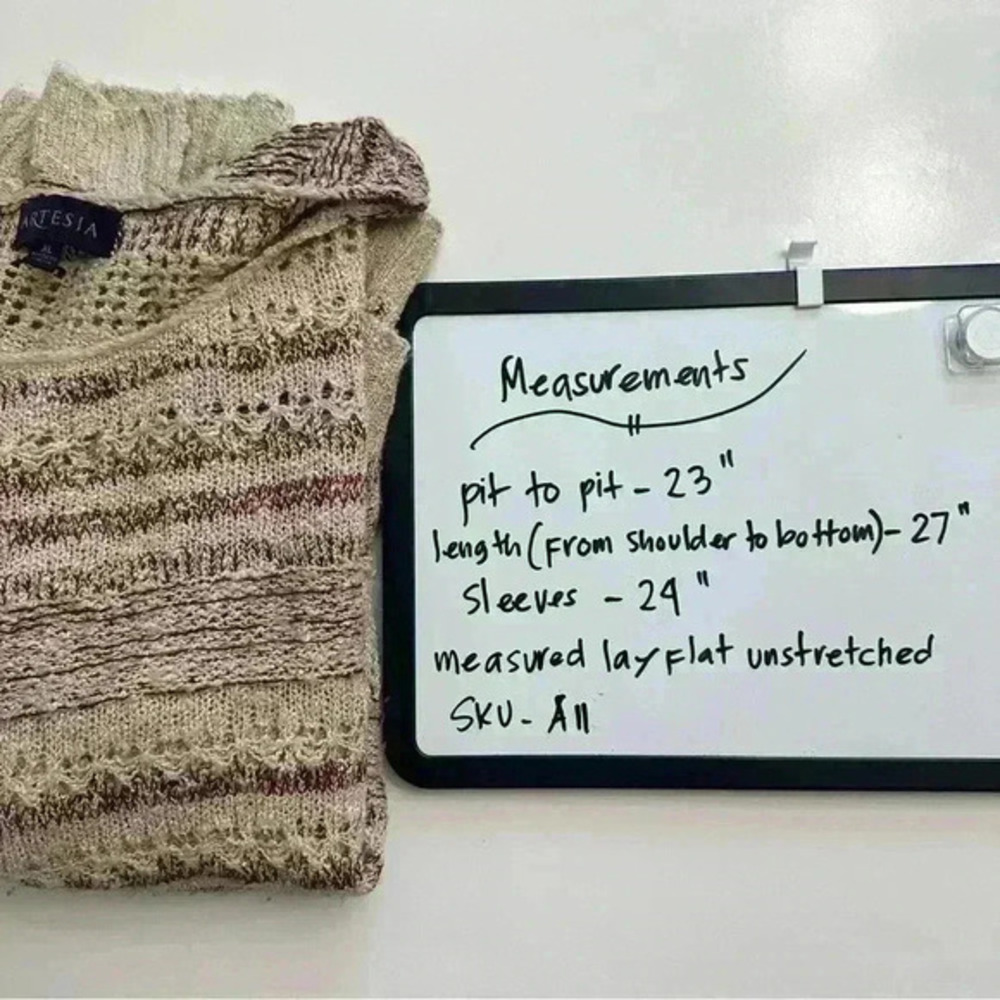 ARTESIA
XL
Measurements
pit to pit - 23"
length (From shoulder to bottom) - 27"
Sleeves - 24"
measured layflat unstretched
SKU - A11